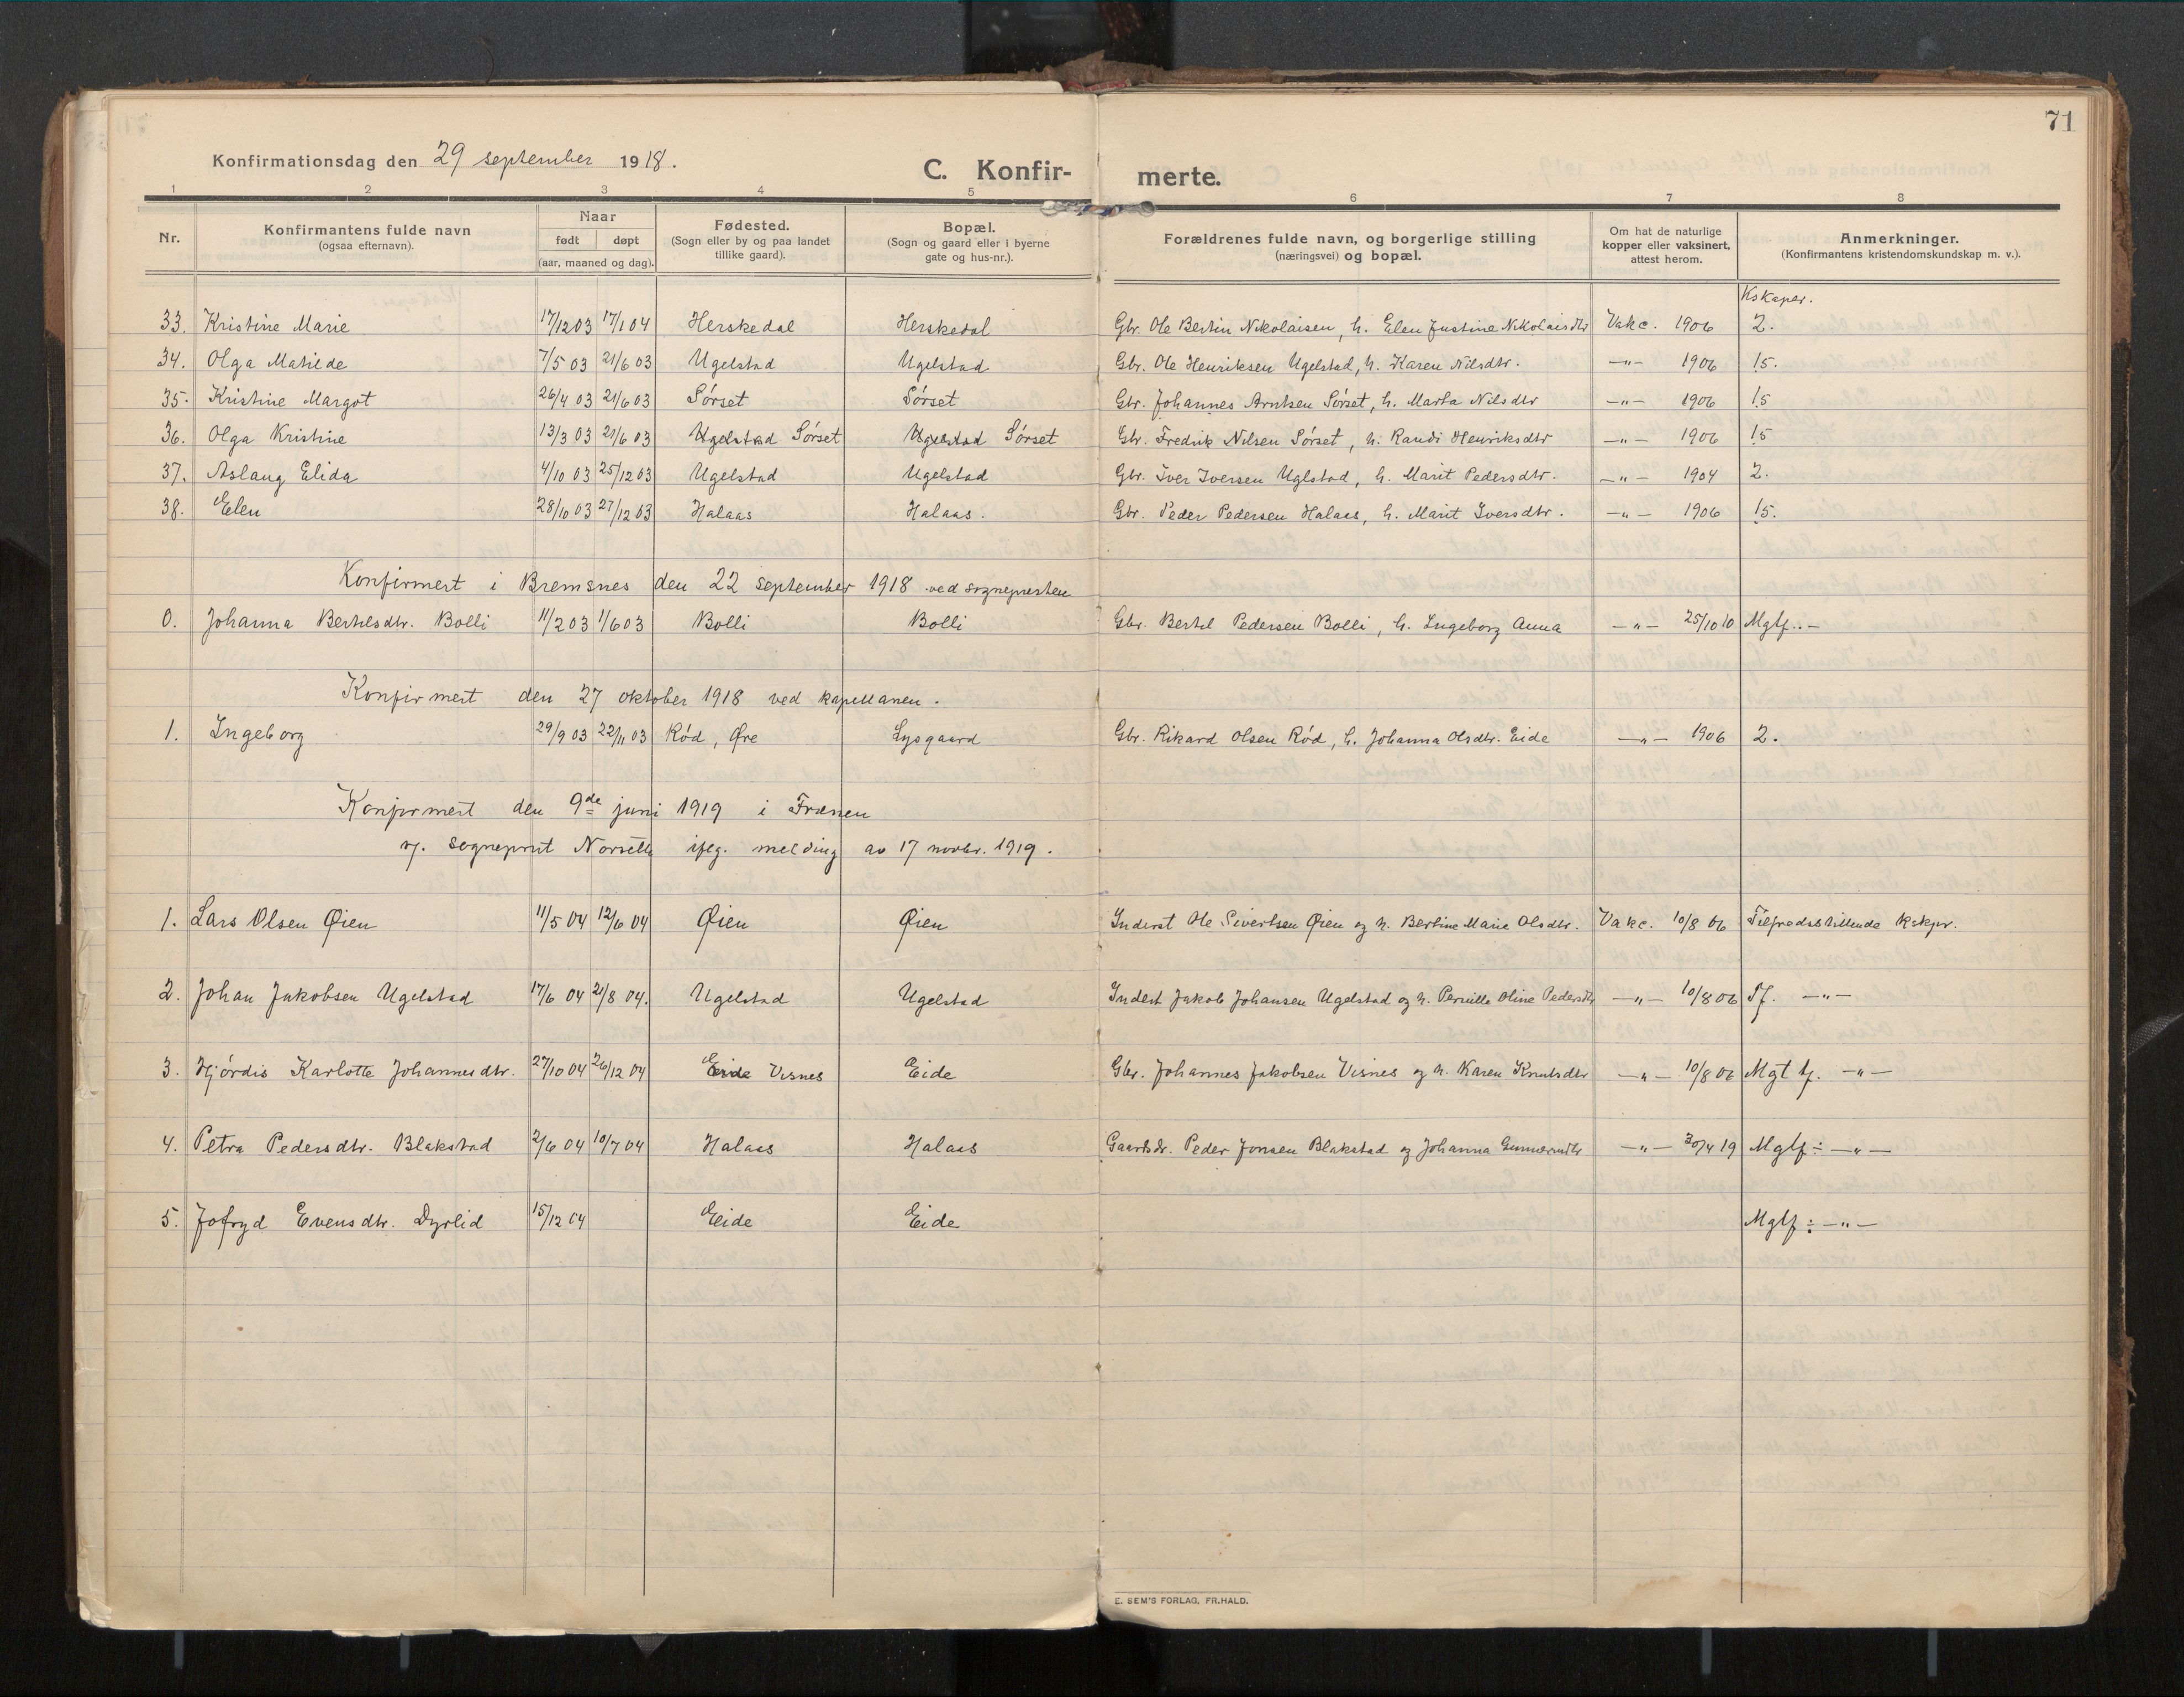 71
Konfirmationsdag den 29 september 1918.
C. Konfir- merte.
1 2 3 4 5 6 7 8
Nr. Konfirmantens fulde navn (ogsaa efternavn). Naar født døpt (aar, maaned og dag). Fødested. (Sogn eller by og paa landet tillike gaard). Bopæl. (Sogn og gaard eller i byerne gate og hus-nr.). Forældrenes fulde navn, og borgerlige stilling (næringsvei) og bopæl. Om hat de naturlige kopper eller vaksinert, attest herom. Anmerkninger. (Konfirmantens kristendomskundskap m. v.).
Kskaper.
33. Kristine Marie 17/12 03 17/1 04 Herskedal Herskedal Gbr. Ole Bertin Nikolaisen, h. Elen Justine Nikolaisdtr Vakc. 1906 2.
34. Olga Matilde 7/5 03 21/6 03 Ugelstad Ugelstad Gbr. Ole Henriksen Ugelstad, h. Karen Nilsdtr. —"— 1906 1.5.
35. Kristine Margot 26/4 03 21/6 03 Sørset Sørset Gbr. Johannes Arntsen Sørset, h. Marta Nilsdtr —"— 1906 1.5
36. Olga Kristine 13/3 03 21/6 03 Ugelstad Sørset Ugelstad Sørset Gbr. Fredrik Nilsen Sørset, h. Randi Henriksdtr —"— 1906 1.5
37. Aslaug Elida 4/10 03 25/12 03 Ugelstad Ugelstad Gbr. Iver Iversen Uglstad, h. Marit Pedersdtr. —"— 1904 2.
38. Elen 28/10 03 27/12 03 Halaas Halaas. Gbr. Peder Pedersen Halaas, h. Marit Iversdtr. —"— 1906 1.5.
Konfirmert i Bremsnes den 22 september 1918 ved sognepresten
0. Johanna Bertilsdtr. Bolli 11/2 03 1/6 03 Bolli Bolli Gbr. Bertil Pedersen Bolli, h. Ingeborg Anna —"— 25/10 10 Mgtf..—
Konfirmert den 27 oktober 1918 ved kapellanen.
1. Ingeborg 29/9 03 22/11 03 Rød, Øre Lysgaard Gbr. Rikard Olsen Rød, h. Johanna Olsdtr. Eide —"— 1906 2.
Konfirmert den 9de juni 1919 i Frænen
v. sogneprest ifлg. melding av 17 novbr. 1919.
1. Lars Olsen Øien 11/5 04 12/6 04 Øien Øien Inderst Ole Sivertsen Øien og h. Bertine Marie Olsdtr. Vakc. 10/8 06 Tilfredsstillende kskpr.
2. Johan Jakobsen Ugelstad 17/6 04 21/8 04. Ugelstad Ugelstad Inderst Jakob Johansen Ugelstad og h. Pernille Oline Pedersdtr —"— 10/8 06 Tf. —"—
3. Hjørdis Karlotte Johannesdtr. 27/10 04 26/12 04 Eide Visnes Eide Gbr. Johannes Jakobsen Visnes og h. Karen Knutsdtr —"— 10/8 06 Mgt tf. —"—
4. Petra Pedersdtr. Blakstad 2/6 04 10/7 04 Halaas Halaas Gaardbr. Peder Jonsen Blakstad og Johanna Gunnarsdtr —"— 30/4 19 Mgtf ÷ —"—
5. Jofryd Evensdtr. Dyrlid 15/12 04 Eide Eide Mgtf ÷ —"—
E. SEM'S FORLAG, FR.HALD.